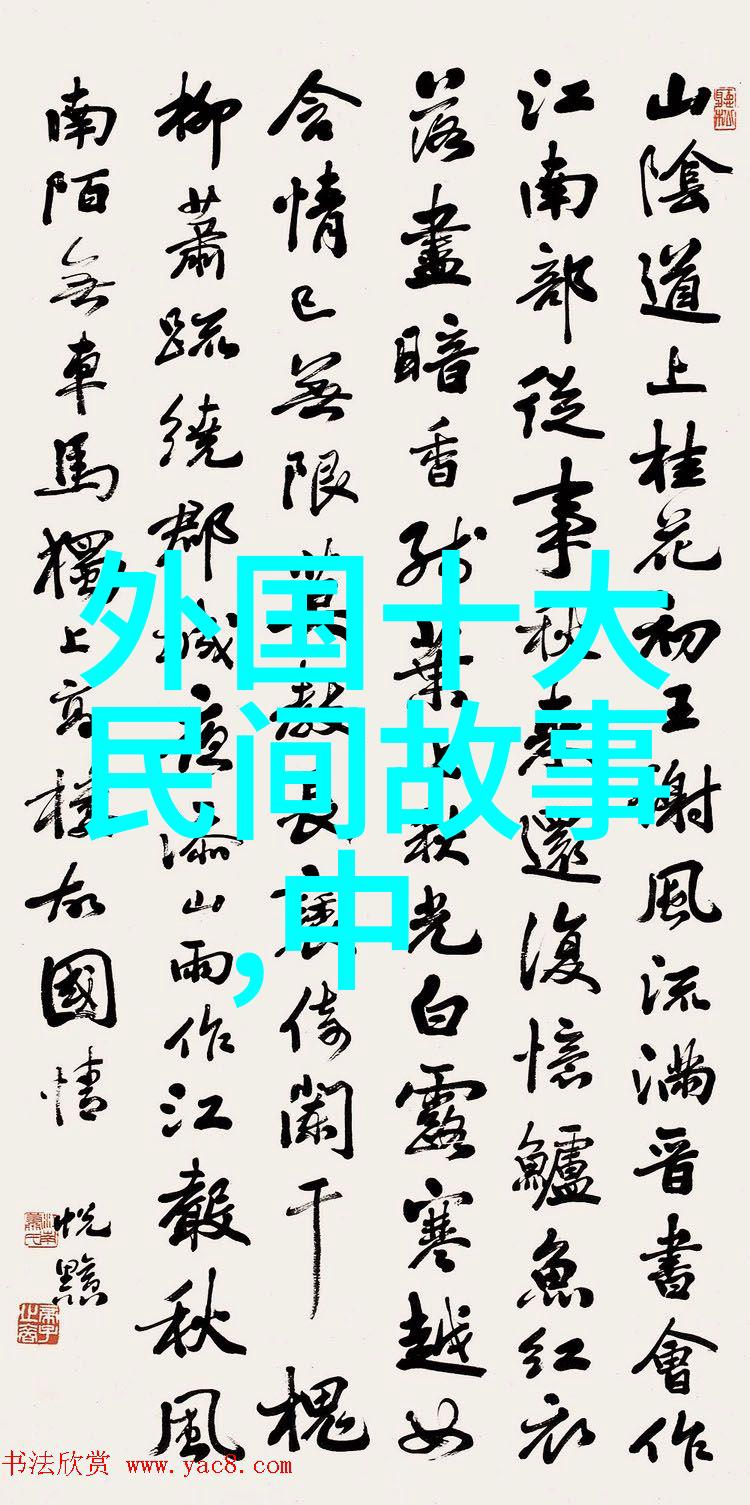 山陰道上桂花初王謝風流滿晉書曾作
江南部從事秋來還復憶鱸魚紅衣
落盡暗香殘葉上秋光白露寒越女
含情已無限莫教長袖倚闌干 槐
柳蕭疏繞郡城夜添山雨作江聲秋風
南陌無車馬獨上高樓故國情
外国十大
民间故事
,中
书法欣赏 www.yac8.com